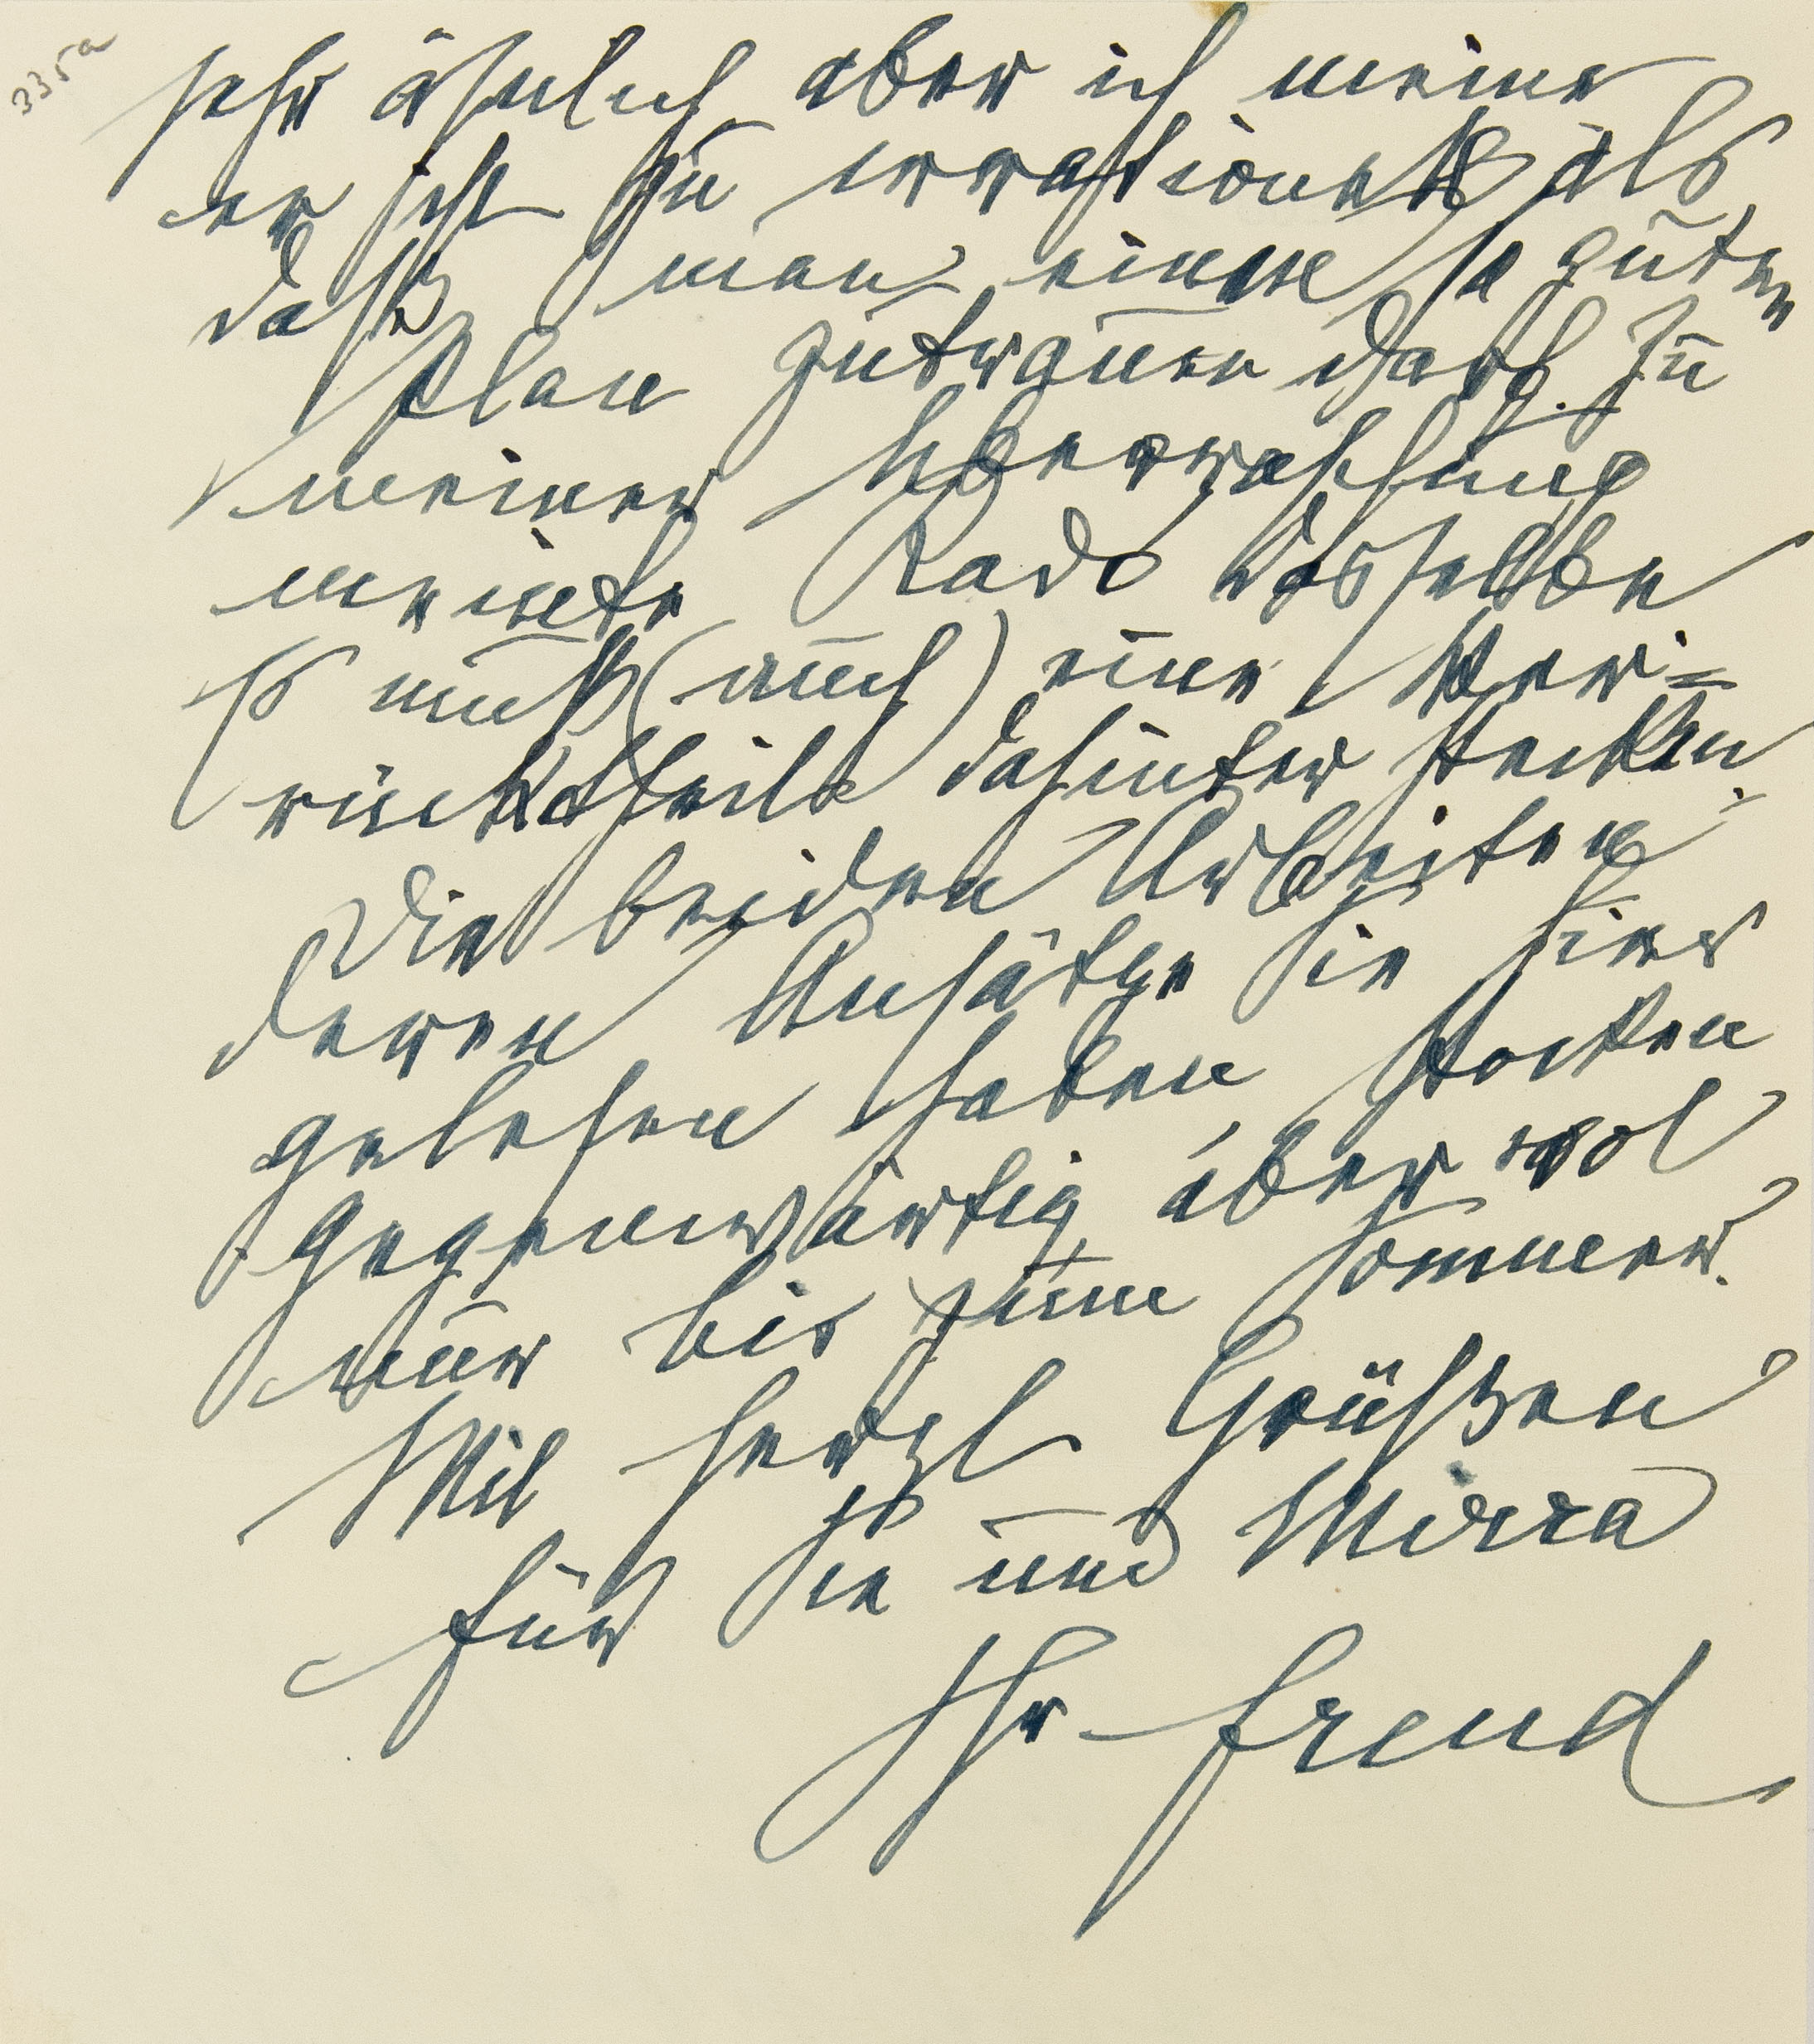 335a
sehr ähnlich, aber ich meine
er ist zu irrationell als
daß man einen so guten
Plan zutrauen darf. Zu
meiner Überraschung
meinte Rado dasselbe
Es muß (auch) eine Ver=
rücktheit dahinter stecken.
Die beiden Arbeiten
deren Ansätze Sie hier
gelesen haben, stocken
gegenwärtig, aber wol
nur bis zum Sommer.
Mit herzl Grüßen
für Sie und Mirra
Ihr Freud